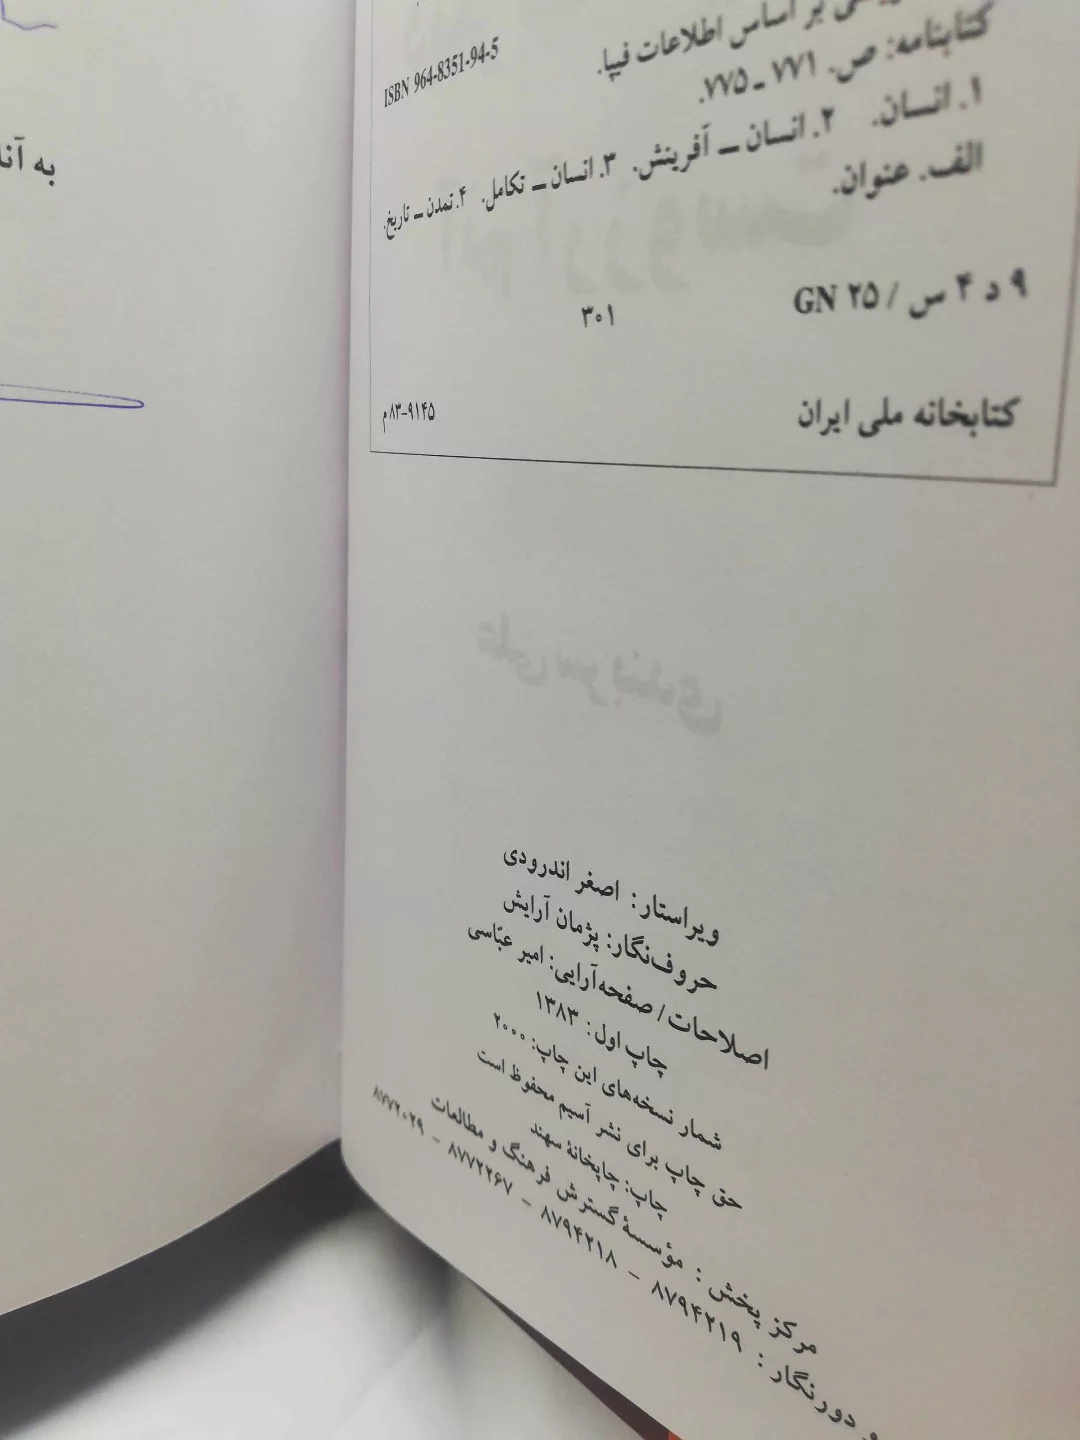 به
بر اساس اطلاعات فیپا.
ISBN 964-8351-94-5
کتابنامه: ص. ۷۷۱ ـ ۷۷۵.
۱. انسان. ۲. انسان ـ آفرینش. ۳. انسان ـ تکامل. ۴. تمدن ـ تاریخ.
الف. عنوان.
۹ د ۴ س / ۲۵ GN
۳۰۱
کتابخانه ملی ایران
۸۳-۹۱۴۵ م
علی سربندی
ویراستار: اصغر اندرودی
حروف‌نگار: پژمان آرایش
اصلاحات/ صفحه‌آرایی: امیر عبّاسی
چاپ اول: ۱۳۸۳
شمار نسخه‌های این چاپ: ۲۰۰۰
حق چاپ برای نشر آسیم محفوظ است
چاپ: چاپخانهٔ سهند
مرکز پخش : مؤسسهٔ گسترش فرهنگ و مطالعات
و دورنگار : ۸۷۹۴۲۱۹ – ۸۷۹۴۲۱۸ – ۸۷۷۲۲۶۷ – ۸۷۷۲۰۲۹